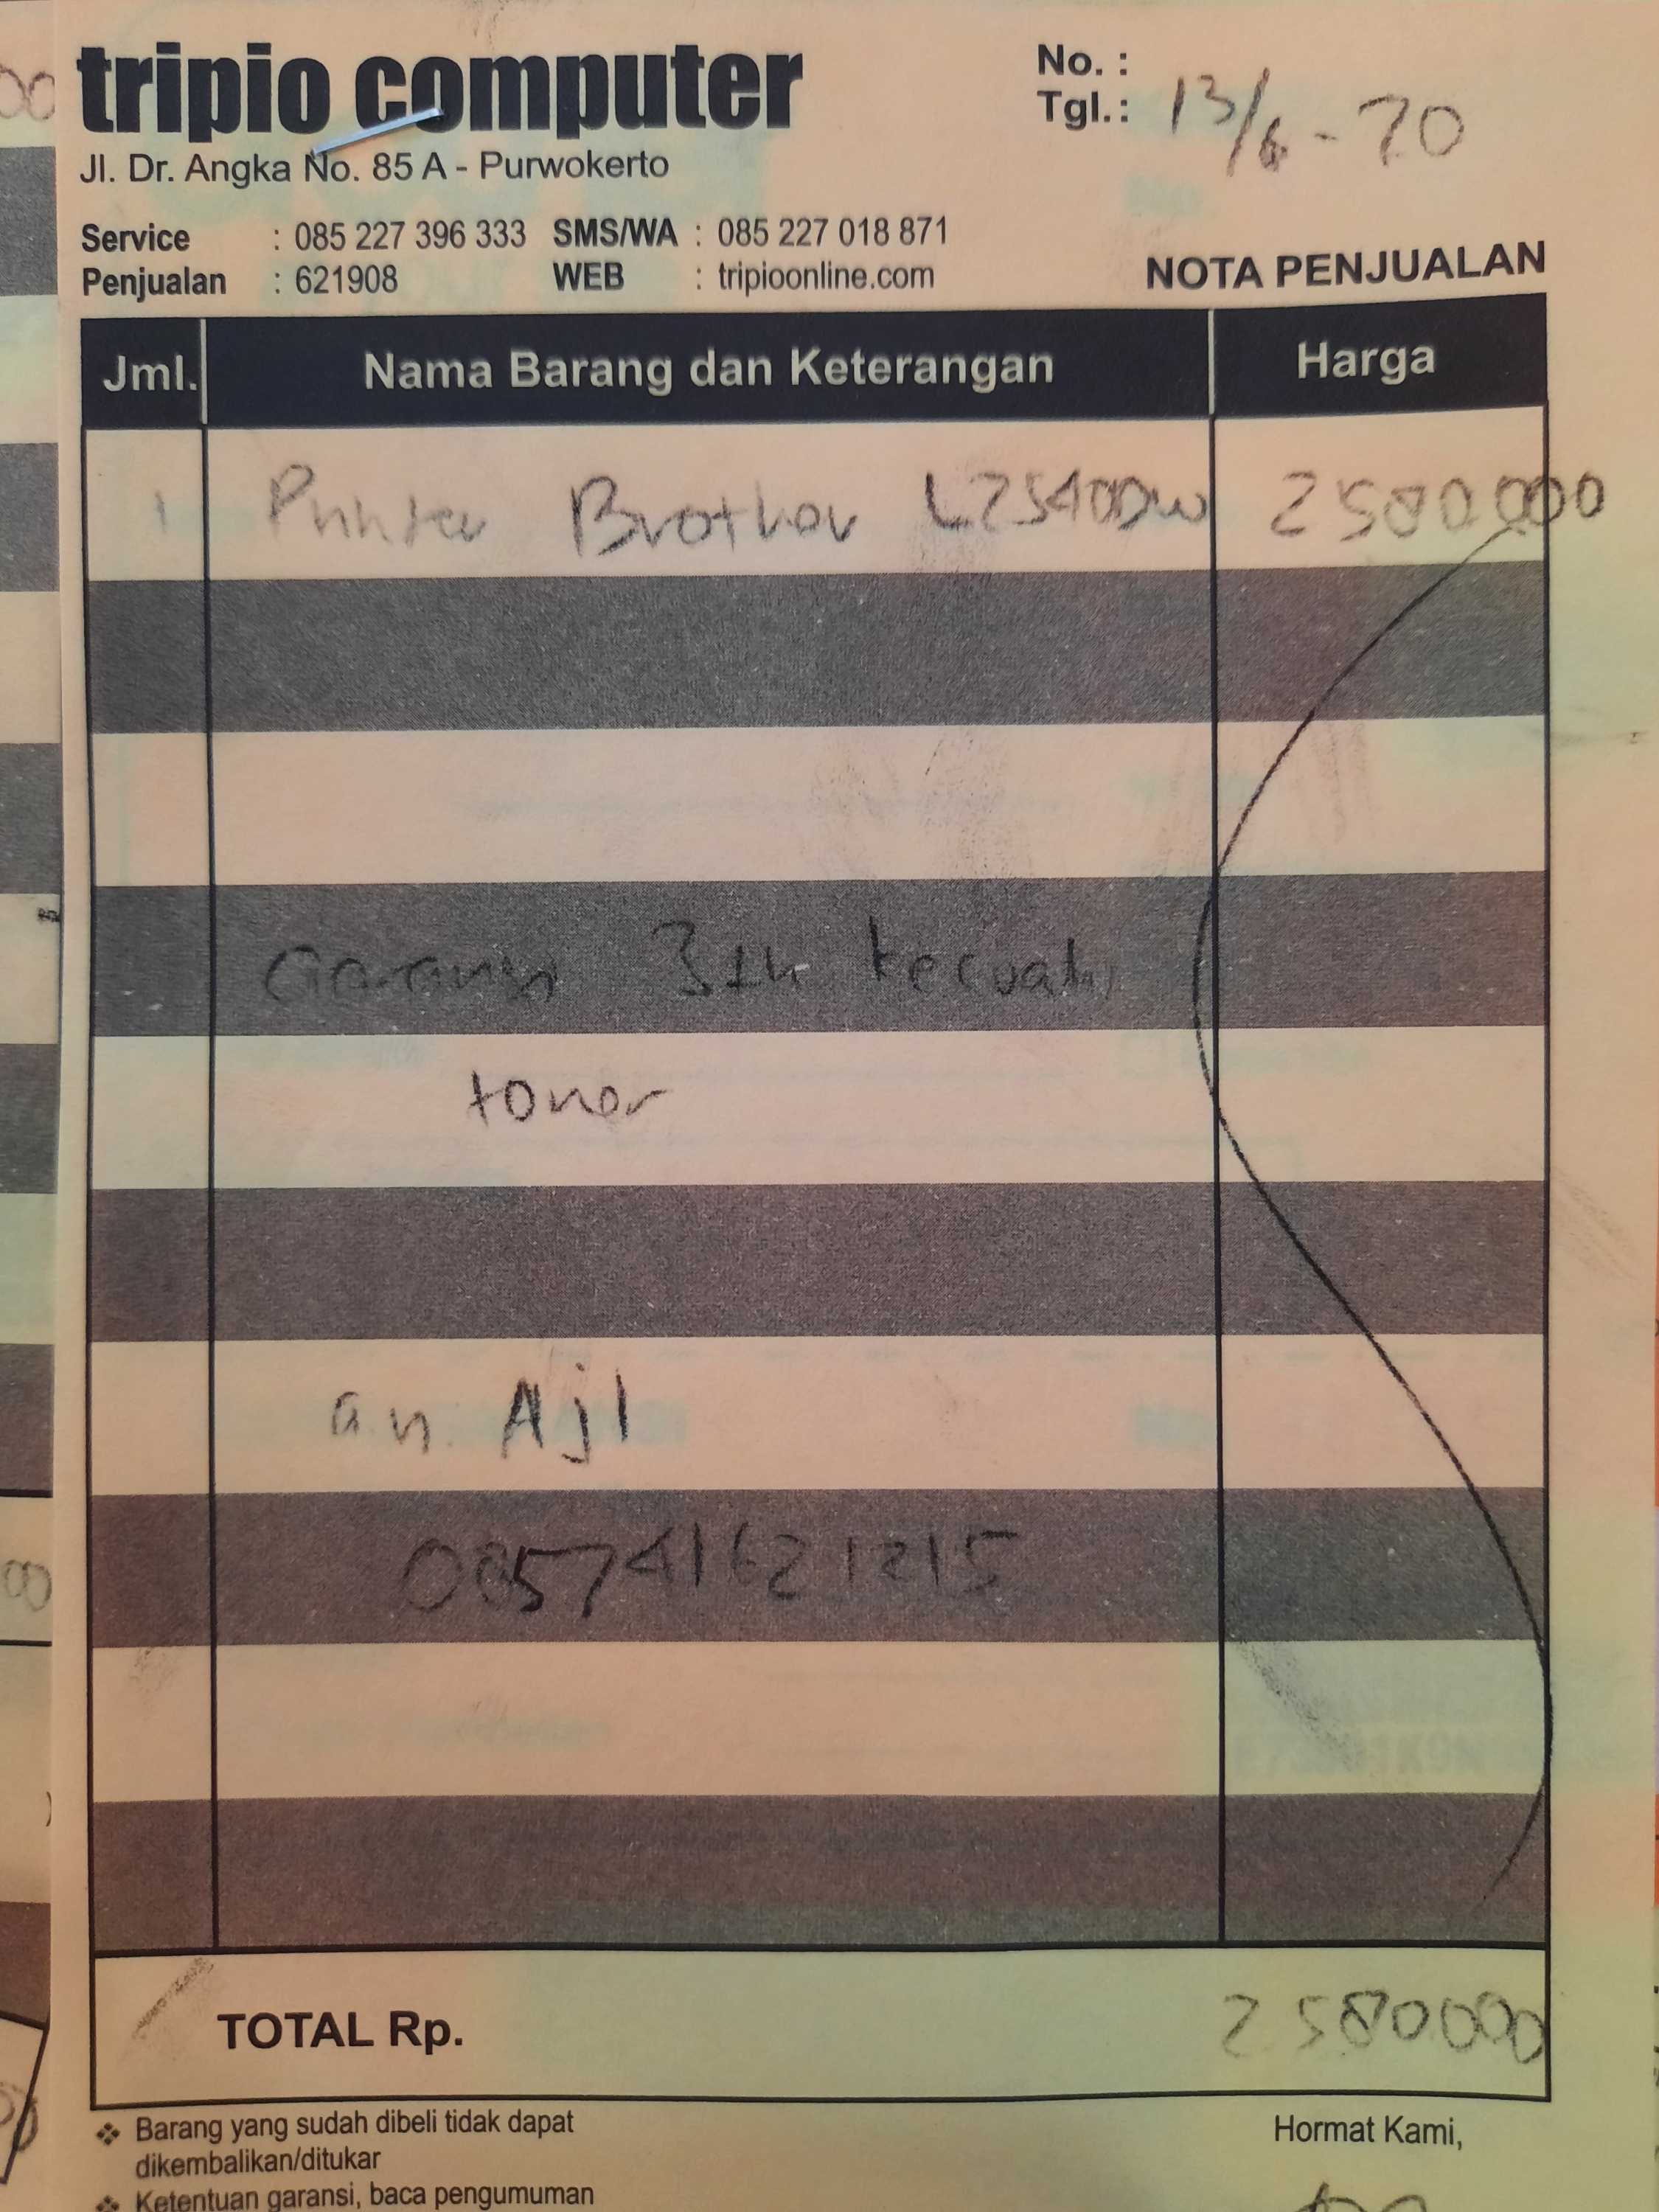 tripio computer
Jl. Dr. Angka No. 85 A - Purwokerto
No. :
Tgl. : 13/6 - 20
Service : 085 227 396 333 SMS/WA : 085 227 018 871
Penjualan : 621908 WEB : tripioonline.com
NOTA PENJUALAN
Jml. Nama Barang dan Keterangan Harga
1 Printer Brother L2540DW 2580000
Garansi 3th kecuali
toner
a.n. Aji
085741621215
TOTAL Rp. 2.580000
❖ Barang yang sudah dibeli tidak dapat
dikembalikan/ditukar
❖ Ketentuan garansi, baca pengumuman
Hormat Kami,